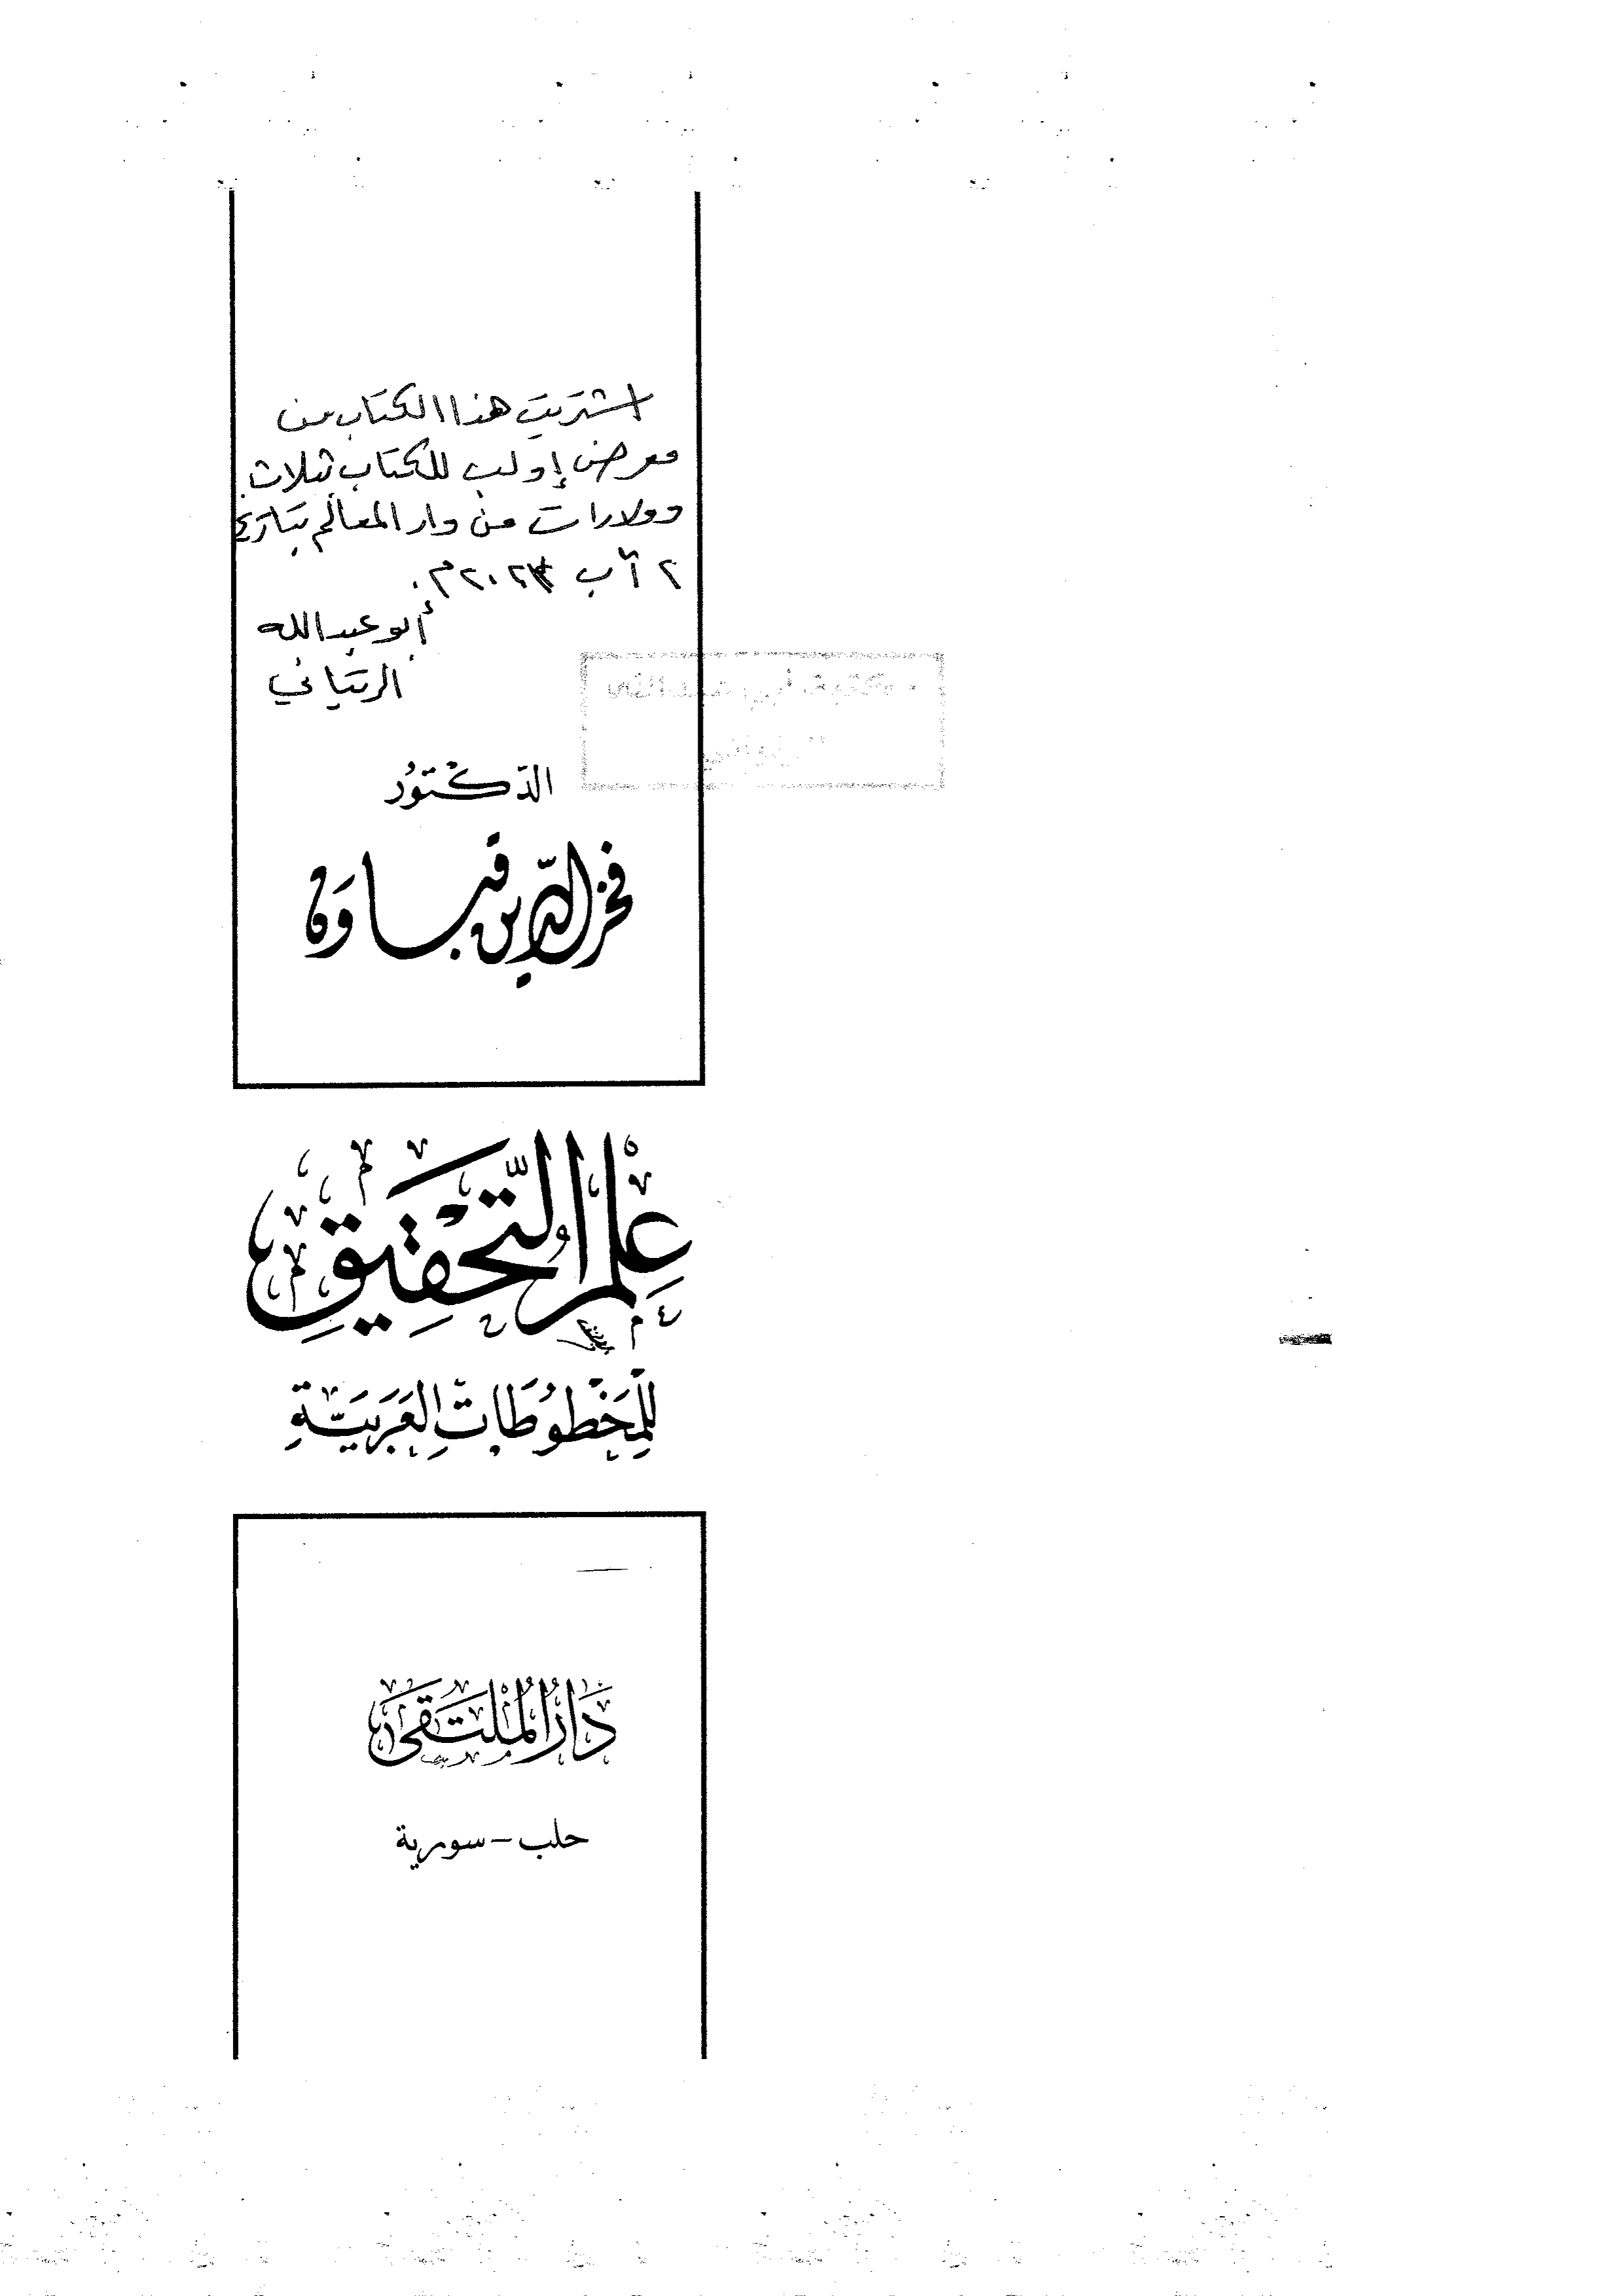 اشتريت هذا الكتاب من
معرض إدلب للكتاب بثلاث
دولارات من دار المعالم بتاريخ
٢ آب ٢٠٢٣م.
أبو عبد الله
الريباني
الدّكتورُ
فخر الدّين قباوة
عِلْمُ التَّحْقِيقِ
لِلْمَخْطُوطَاتِ الْعَرَبِيَّةِ
دَارُ الْمُلْتَقَى
حلب - سورية